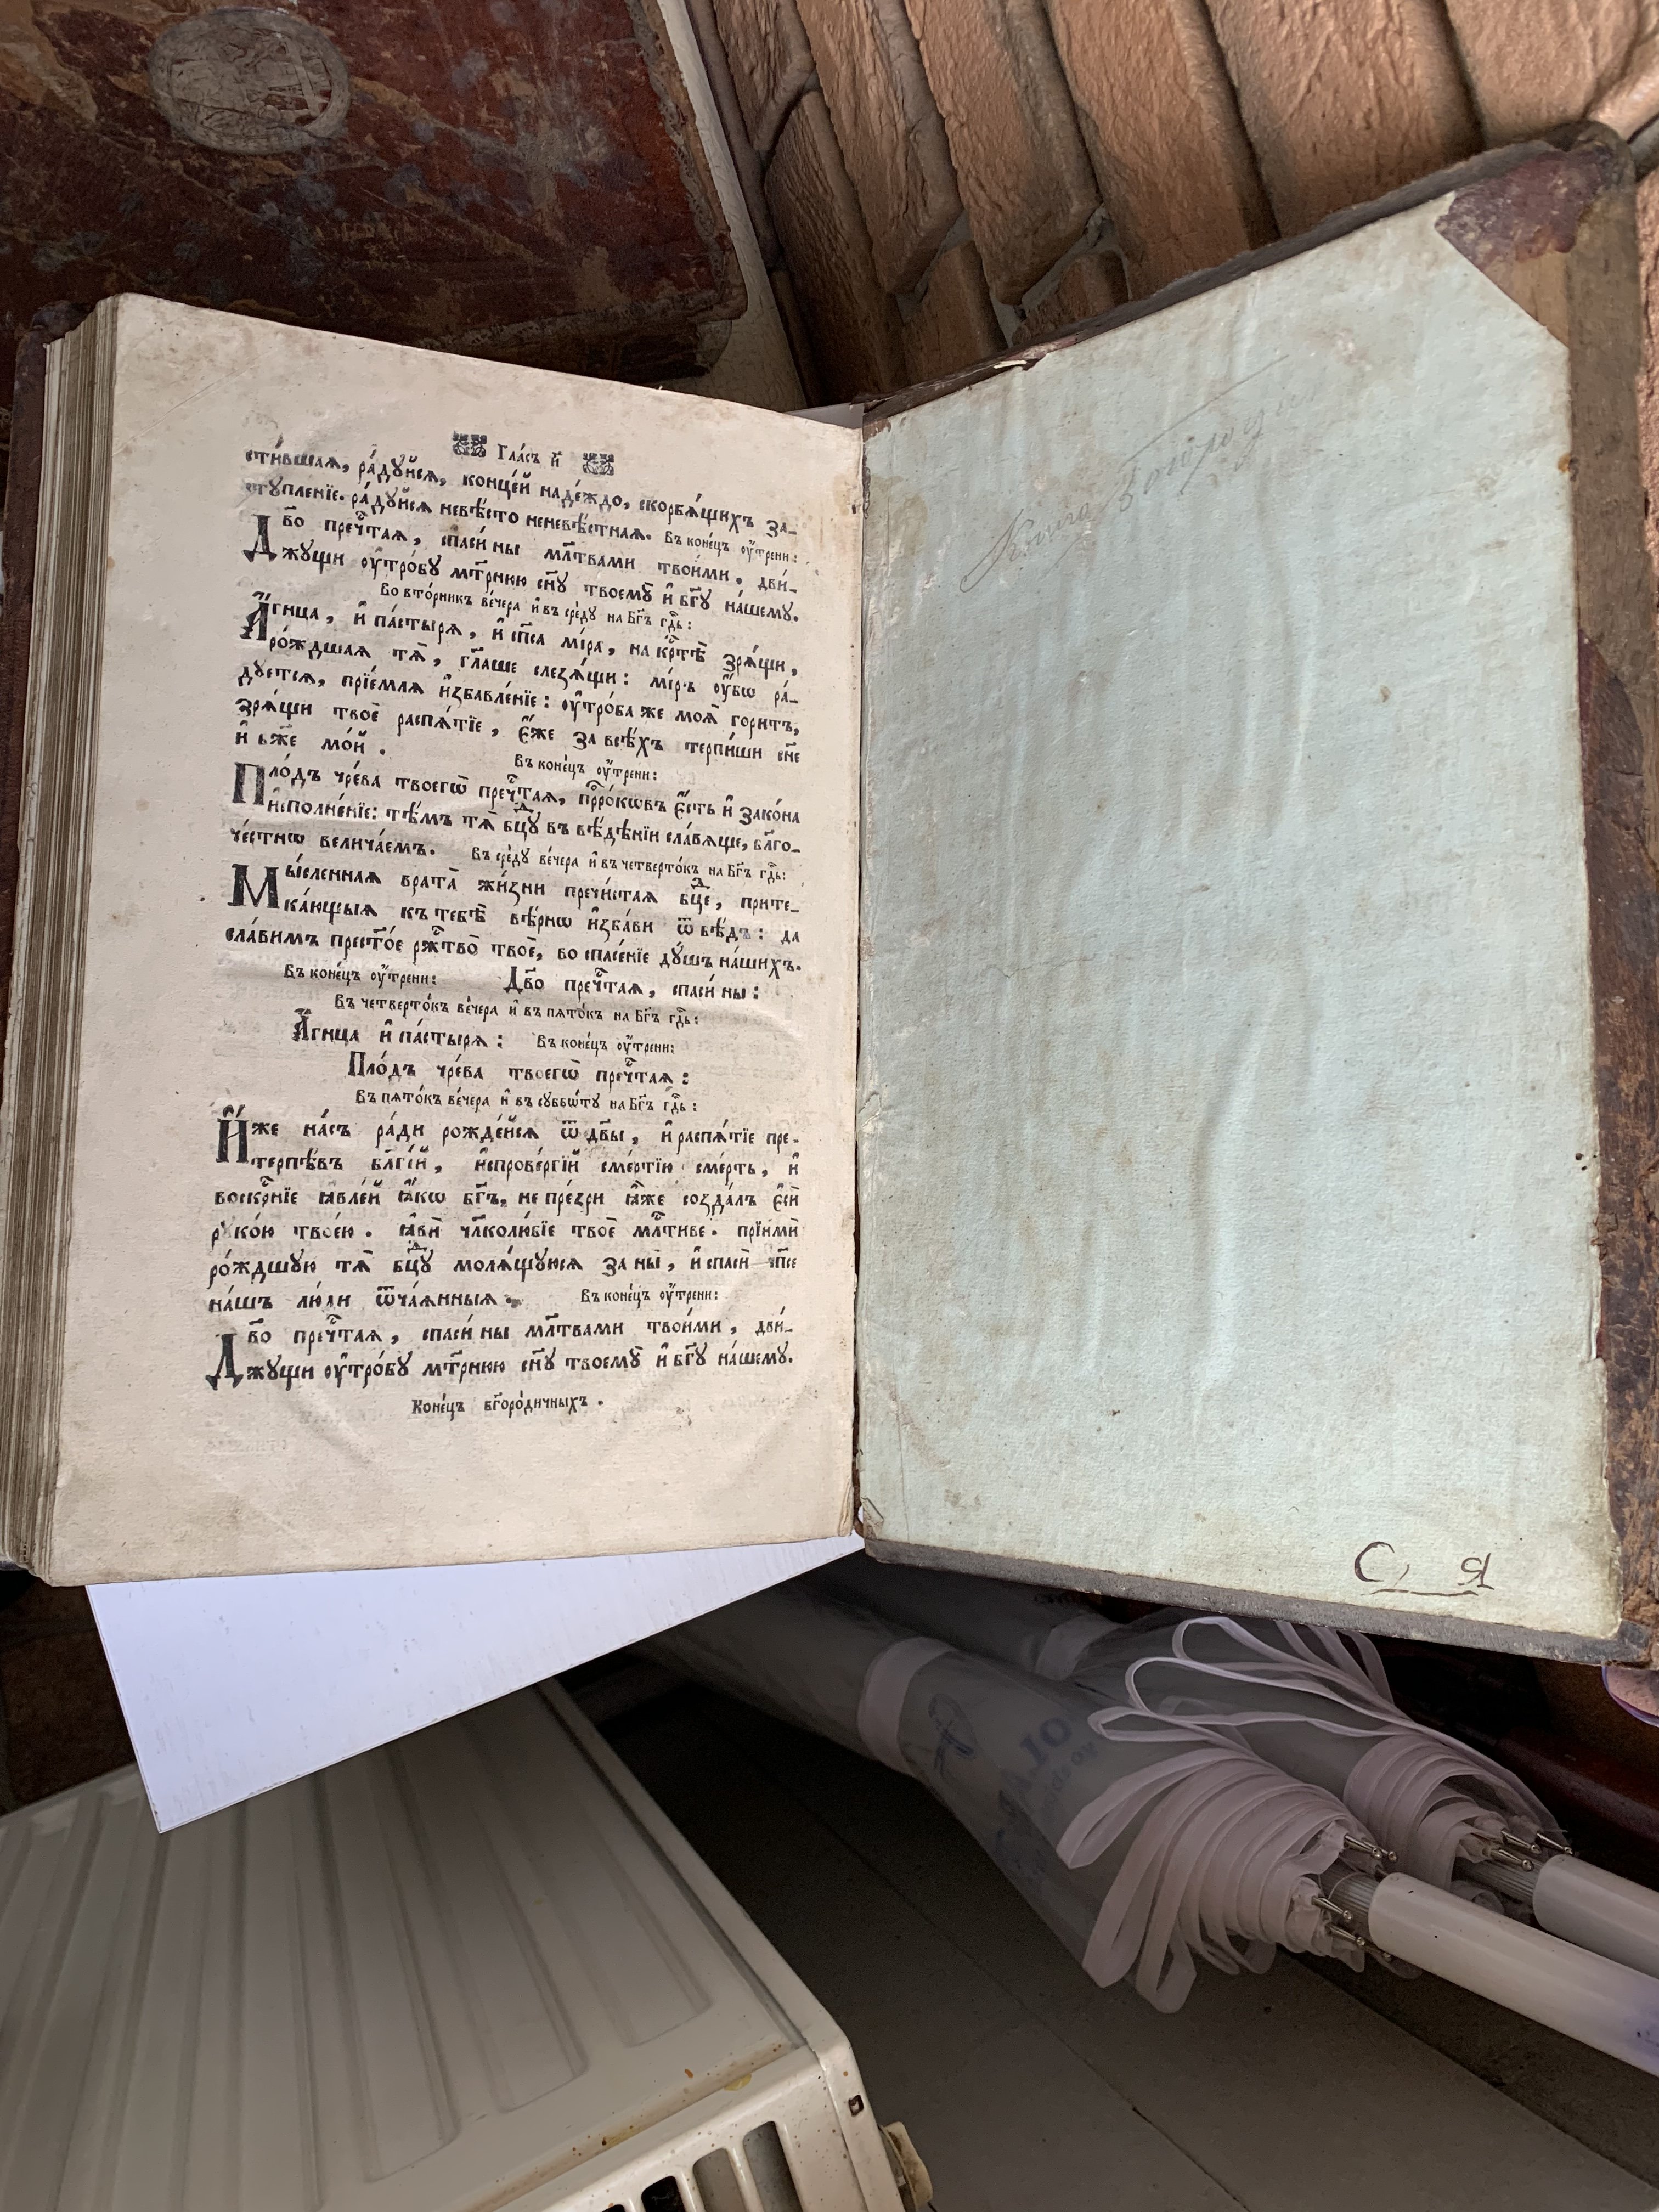 Гла́съ и҃
сти́вшая, ра́дꙋйся, конце́й наде́ждо, скорбя́щихъ за-
стꙋпле́нїе. ра́дꙋйся невѣ́сто неневѣ́стная. Въ коне́цъ оу҆́трени:
Дв҃о пречⷭ҇тая, спаси́ ны мл҃твами твои́ми, дви́-
жꙋщи оу҆тро́бꙋ мт҃рнюю сн҃ꙋ твоемꙋ̀ и҆ бг҃ꙋ на́шемꙋ.
Во вто́рникъ ве́чера и҆ въ сре́дꙋ на Бг҃ъ гдⷭ҇ь:
А҆́гнца, и҆ па́стыря, и҆ сп҃са мі́ра, на крⷭ҇тѣ̀ зря́щи,
ро́ждшая тѧ̀, гл҃аше слезя́щи: мі́ръ оу҆́бѡ ра́-
дꙋется, прїе́мля и҆збавле́нїе: оу҆тро́ба же моѧ̀ гори́тъ,
зря́щи твоѐ распя́тїе, є҆́же за всѣ́хъ терпи́ши сн҃е
и҆ бж҃е мо́й.
Въ коне́цъ оу҆́трени:
Пло́дъ чре́ва твоегѡ̀ пречⷭ҇тая, прⷪ҇ро́кѡвъ є҆́сть и҆ зако́на
и҆сполне́нїе: тѣ́мъ тѧ̀ бцⷣꙋ въ вѣ́дѣнїи сла́вяще, бл҃го-
че́стнѡ велича́емъ. Въ сре́дꙋ ве́чера и҆ въ четверто́къ на Бг҃ъ гдⷭ҇ь:
Мы́сленная врата̀ жи́зни пречи́стая бцⷣе, прите-
ка́ющыя къ тебѣ̀ вѣ́рнѡ и҆зба́ви ѿ бѣ́дъ: да
сла́вимъ прест҃о́е рж҃тво̀ твоѐ, во спасе́нїе дꙋ́шъ на́шихъ.
Въ коне́цъ оу҆́трени: Дв҃о пречⷭ҇тая, спаси́ ны:
Въ четверто́къ ве́чера и҆ въ пято́къ на Бг҃ъ гдⷭ҇ь:
А҆́гнца и҆ па́стыря: Въ коне́цъ оу҆́трени:
Пло́дъ чре́ва твоегѡ̀ пречⷭ҇тая:
Въ пято́къ ве́чера и҆ въ сꙋббѡ́тꙋ на Бг҃ъ гдⷭ҇ь:
И҆́же на́съ ра́ди рожде́йся ѿ дв҃ы, и҆ распя́тїе пре-
терпѣ́въ бл҃гі́й, и҆спрове́ргїй сме́ртїю сме́рть, и҆
воскрⷭ҇нїе ꙗ҆вле́й ꙗ҆́кѡ бг҃ъ, не пре́зри ꙗ҆̀же созда́лъ є҆сѝ
рꙋко́ю твое́ю. ꙗ҆вѝ чл҃колю́бїе твоѐ млⷭ҇тиве. прїимѝ
ро́ждшꙋю тѧ̀ бцⷣꙋ моля́щꙋюся за ны̀, и҆ спасѝ сп҃се
на́шъ лю́ди ѿча́янныя. Въ коне́цъ оу҆́трени:
Дв҃о пречⷭ҇тая, спаси́ ны мл҃твами твои́ми, дви́-
жꙋщи оу҆тро́бꙋ мт҃рнюю сн҃ꙋ твоемꙋ̀ и҆ бг҃ꙋ на́шемꙋ.
Коне́цъ бг҃оро́дичныхъ.
Книга